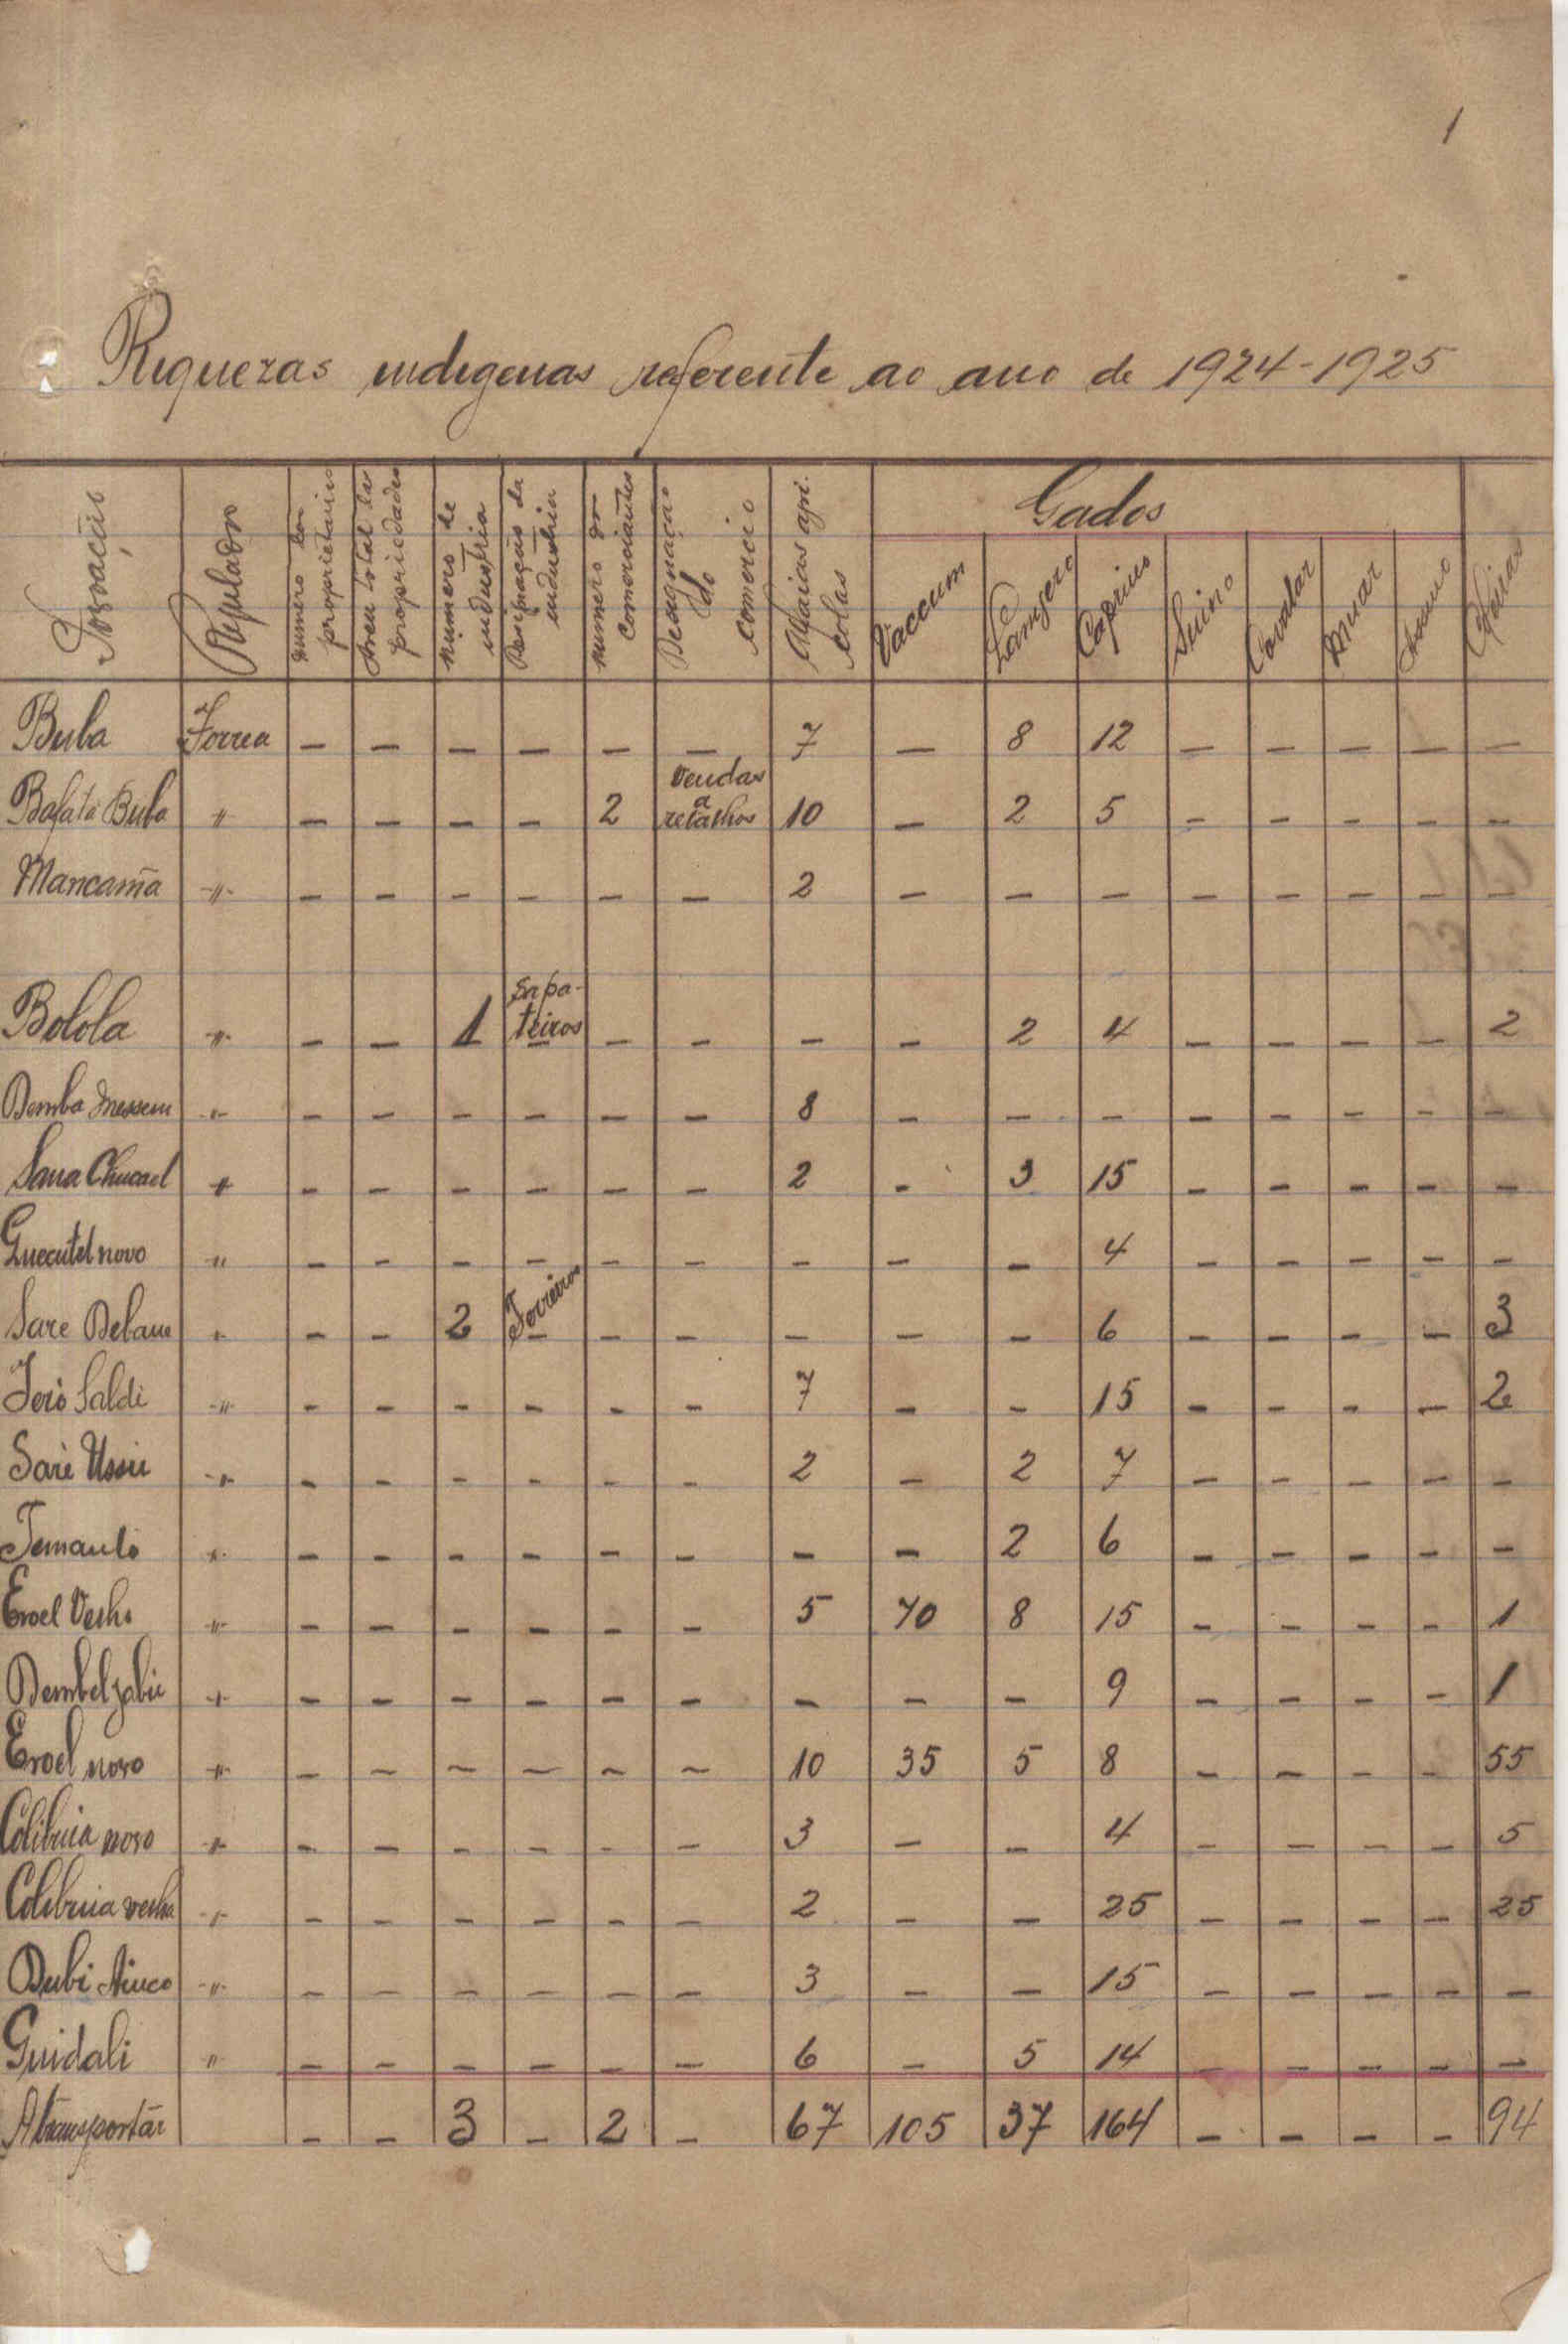 1
Riquezas indigenas referente ao ano de 1924-1925
Povoação Regulado numero de proprietarios Area total das propriedades numero de industria Designação da industria numero de comerciantes Designação do comercio Alfaias agricolas Gados
Vaccum Lanigero Caprino Suino Cavalar Muar Asinino
Buba Forrea — — — — — — 7 — 8 12 — — — — —
Bafatá Buba " — — — — 2 vendas a retalhos 10 — 2 5 — — — — —
Mancama -"- — — — — — — 2 — — — — — — — —
Bolola -"- — — 1 sapateiros — — — — 2 4 — — — — 2
Demba -"- — — — — — — 8 — — — — — — — —
Sana Chucael " — — — — — — 2 - 3 15 — — — — —
Guecutel novo " — — — — — — — — — 4 — — — — —
Sare Delane " — — 2 Forreiros — — — — — 6 — — — — 3
Jeró Saldi -"- — — — — — — 7 — — 15 — — — — 2
Sarè Ussu -"- — — — — — — 2 — 2 7 — — — — —
Temanto -"- — — — — — — — — 2 6 — — — — —
Eroel Velho -"- — — — — — — 5 70 8 15 — — — — 1
Dembel -"- — — — — — — — — — 9 — — — — 1
Eroel novo -"- — — — — — — 10 35 5 8 — — — — 55
Colibuia novo -"- — — — — — — 3 — — 4 — — — — 5
Colibuia velha -"- — — — — — — 2 — — 25 — — — — 25
Dubi -"- — — — — — — 3 — — 15 — — — — —
Guidali " — — — — — — 6 — 5 14 — — — — —
A transportár — — 3 — 2 — 67 105 37 164 — — — — 94